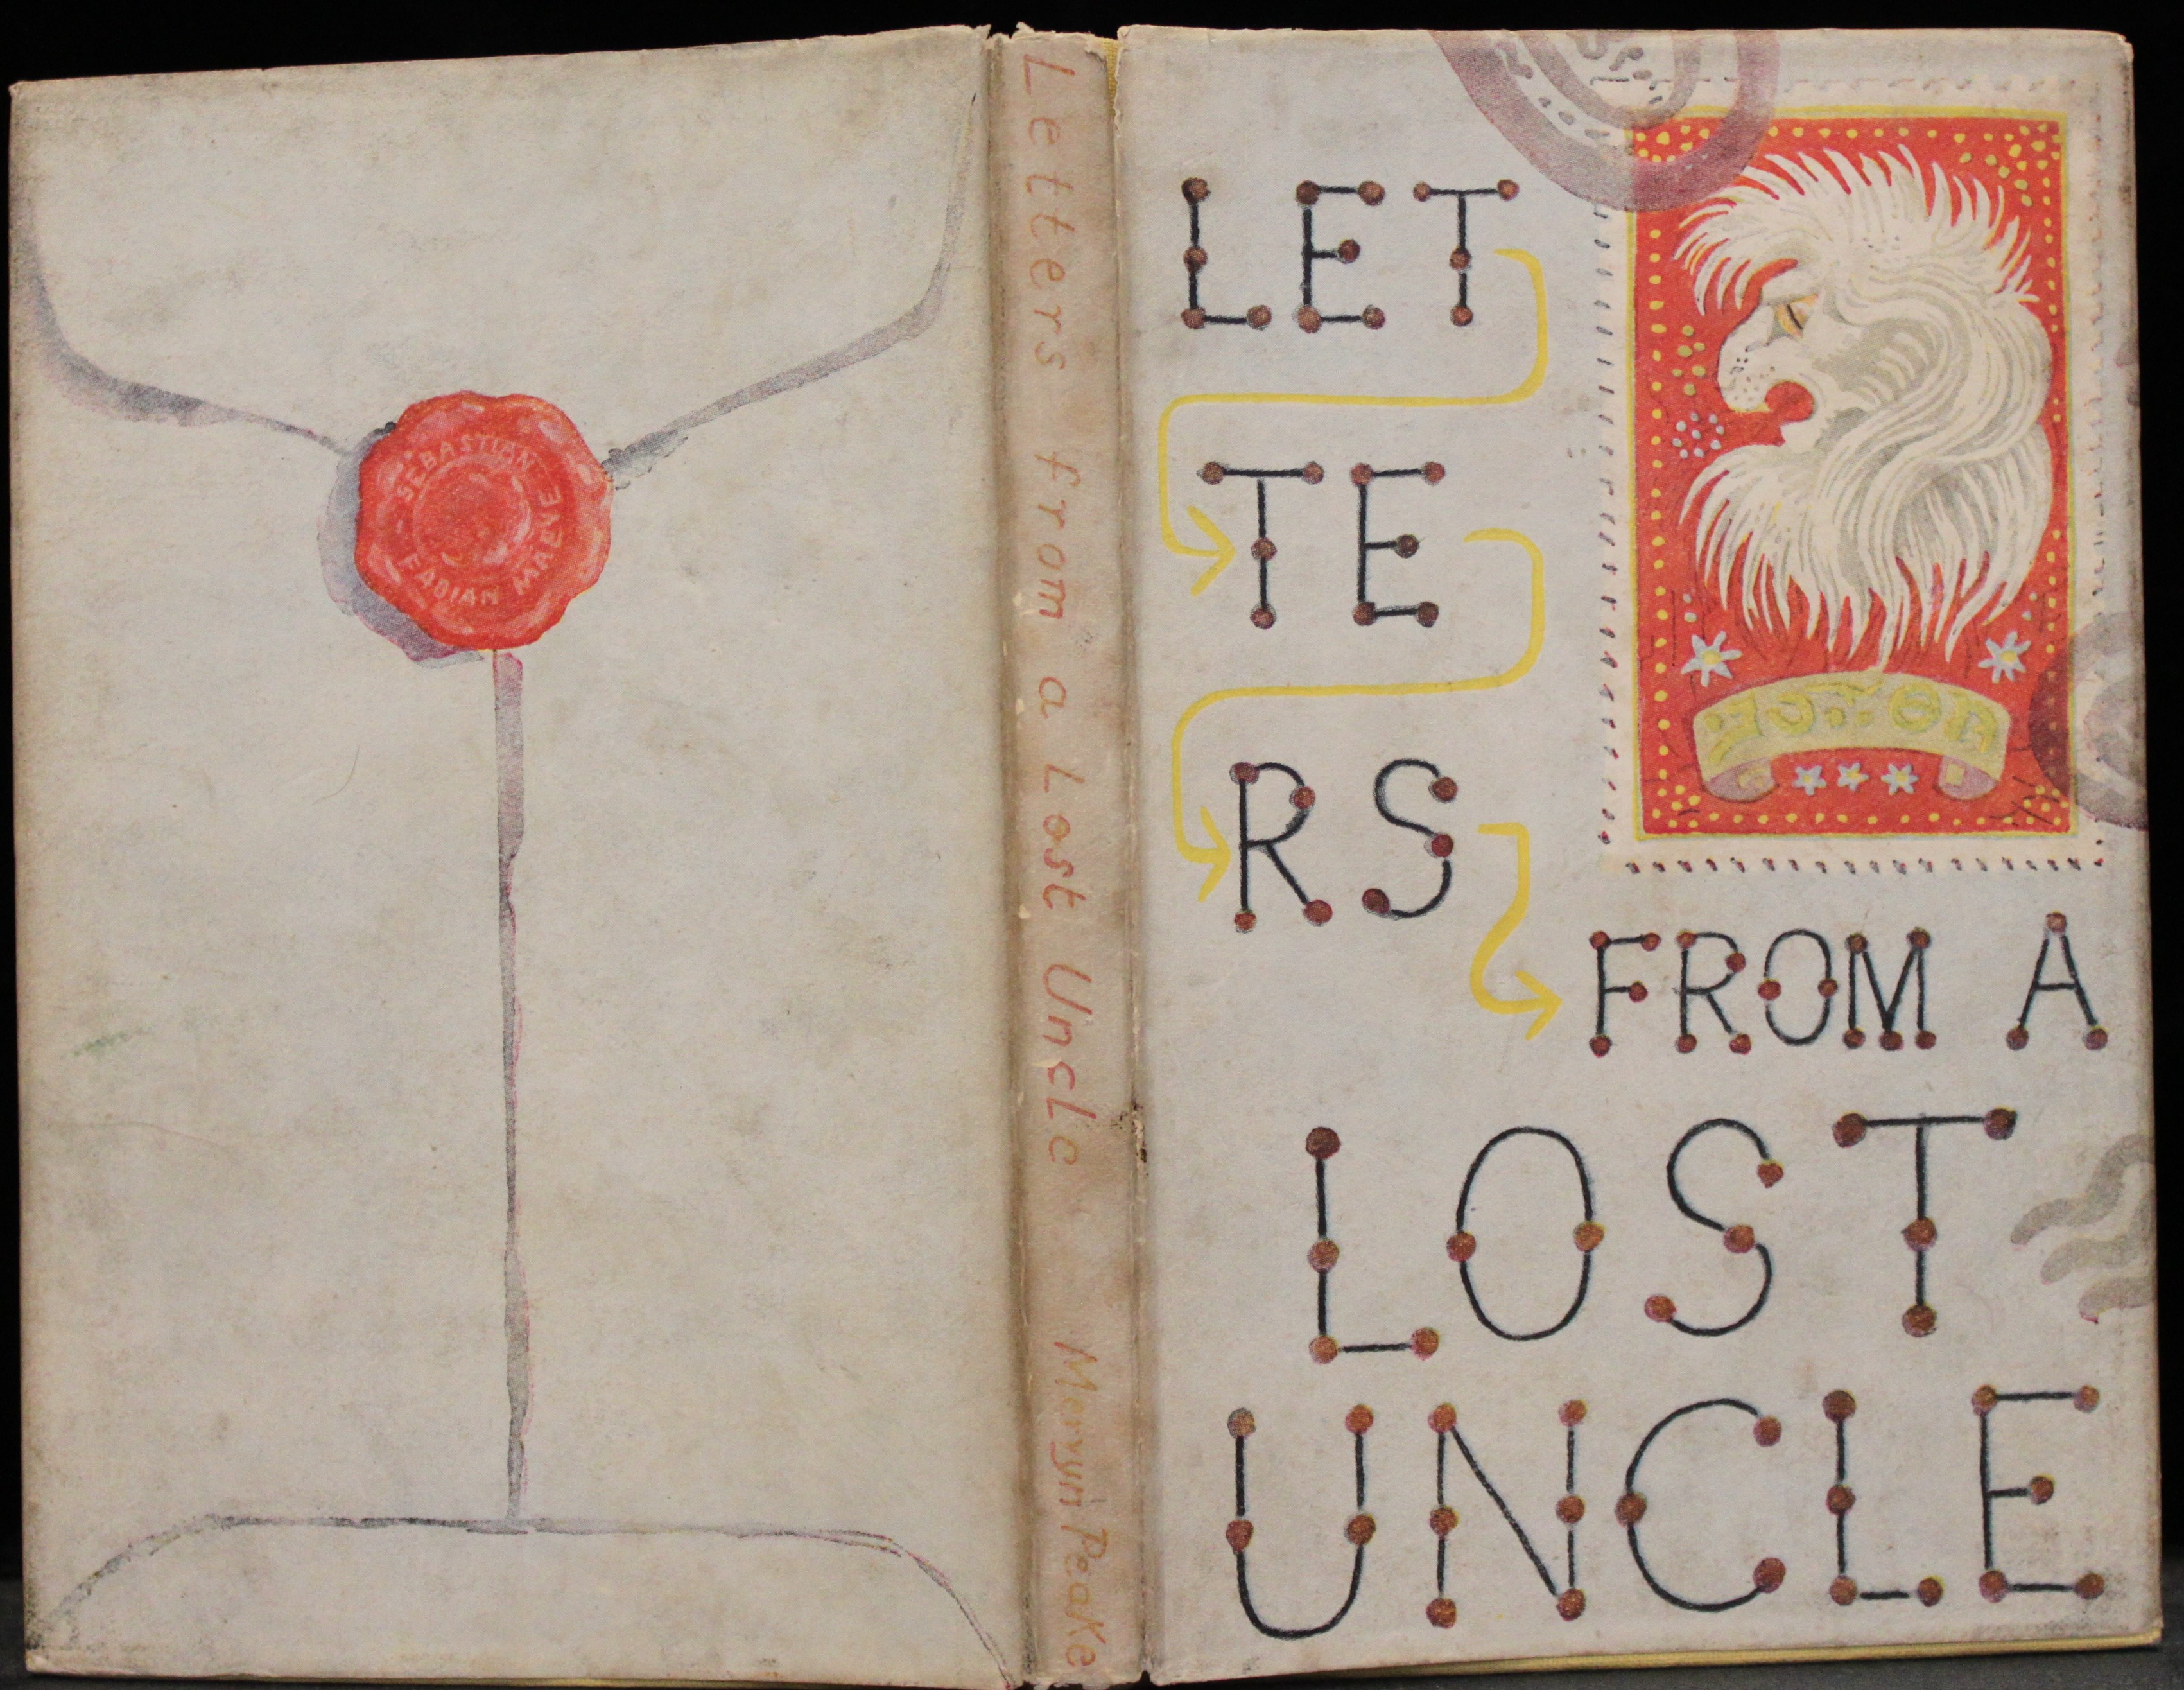 SEBASTIAN
FABIAN MAEVE
Letters from a Lost Uncle Mervyn Peake
LET
TE
RS
FROM A
LOST
UNCLE